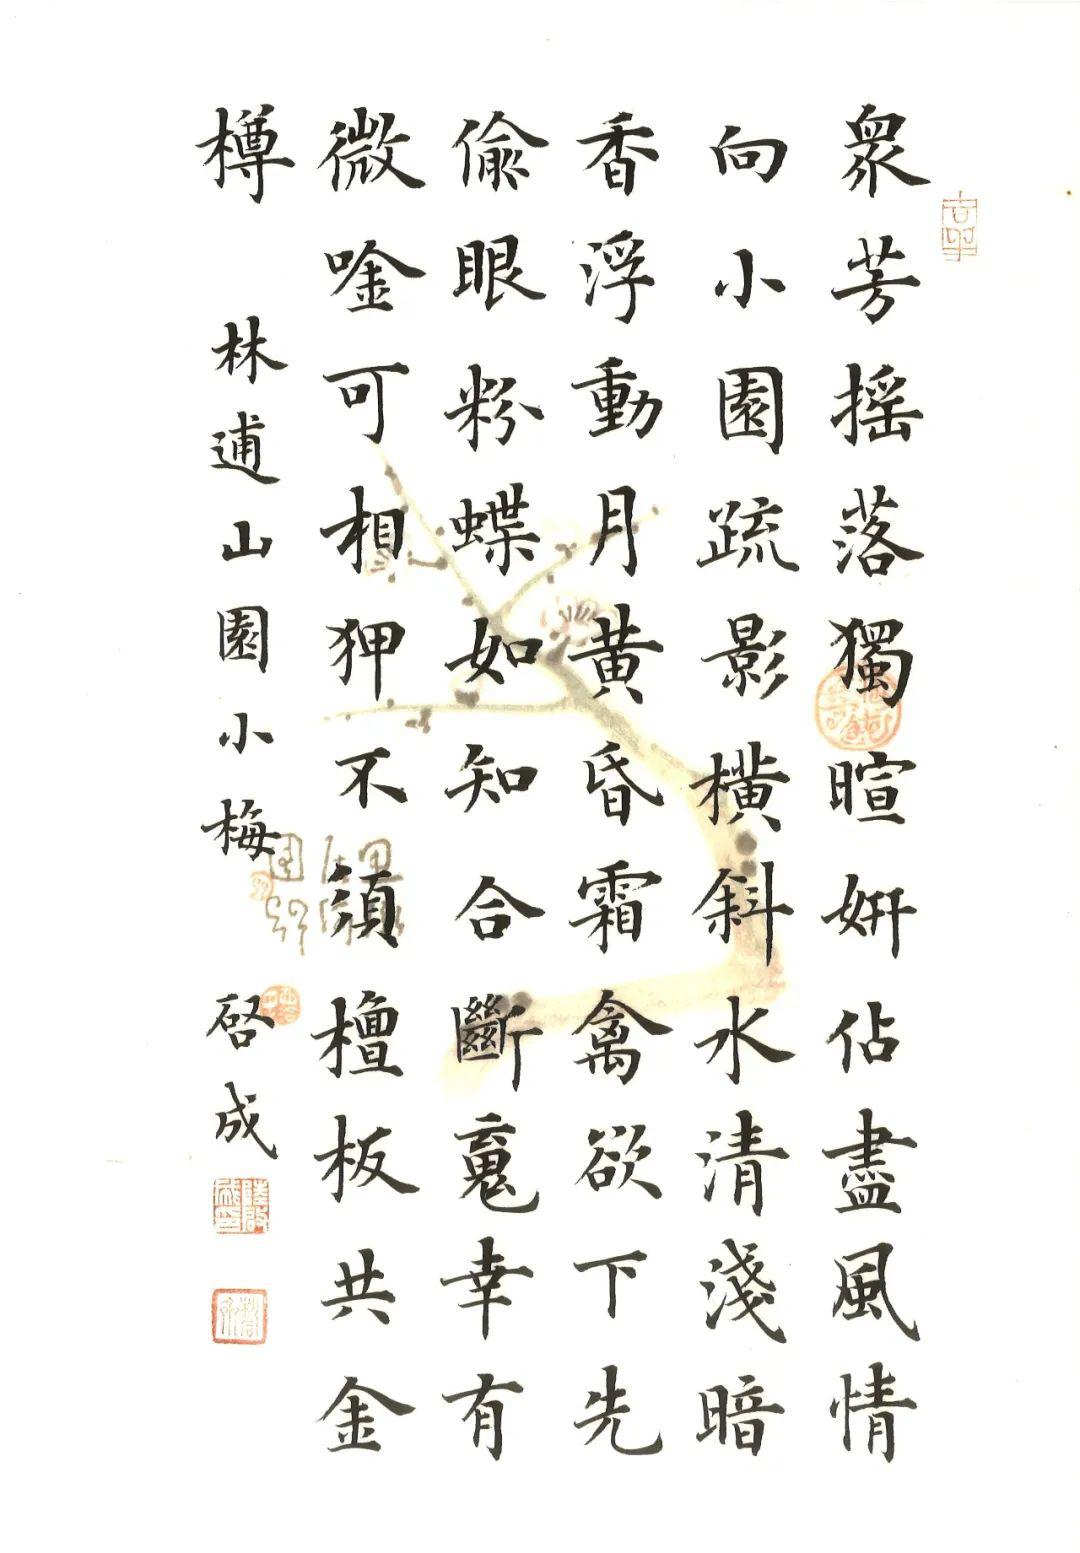 衆芳摇落獨暄妍佔盡風情
向小園疏影橫斜水清淺暗
香浮動月黄昏霜禽欲下先
偷眼粉蝶如知合斷䰟幸有
微唫可相狎不須檀板共金
樽 林逋山園小梅 啓成